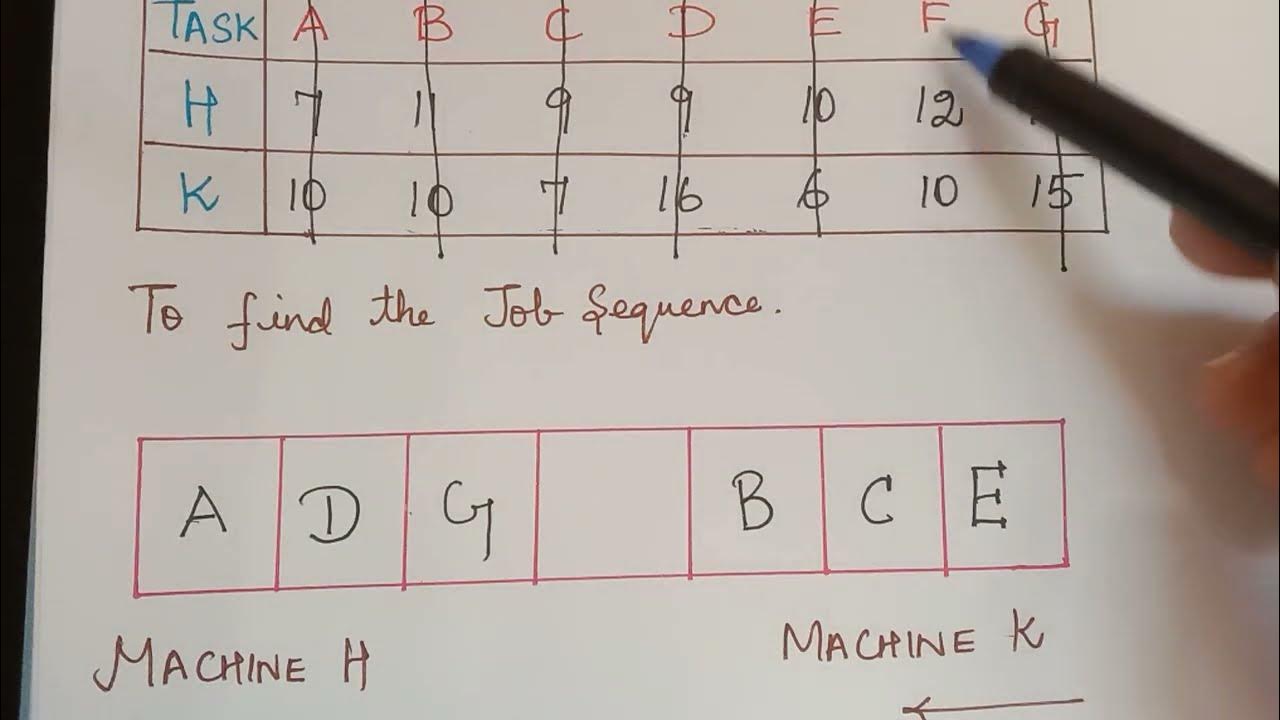 TASK A B C D E F G
H 7 11 9 9 10 12
K 10 10 7 16 6 10 15
To find the Job Sequence.
A D G B C E
MACHINE H
MACHINE K